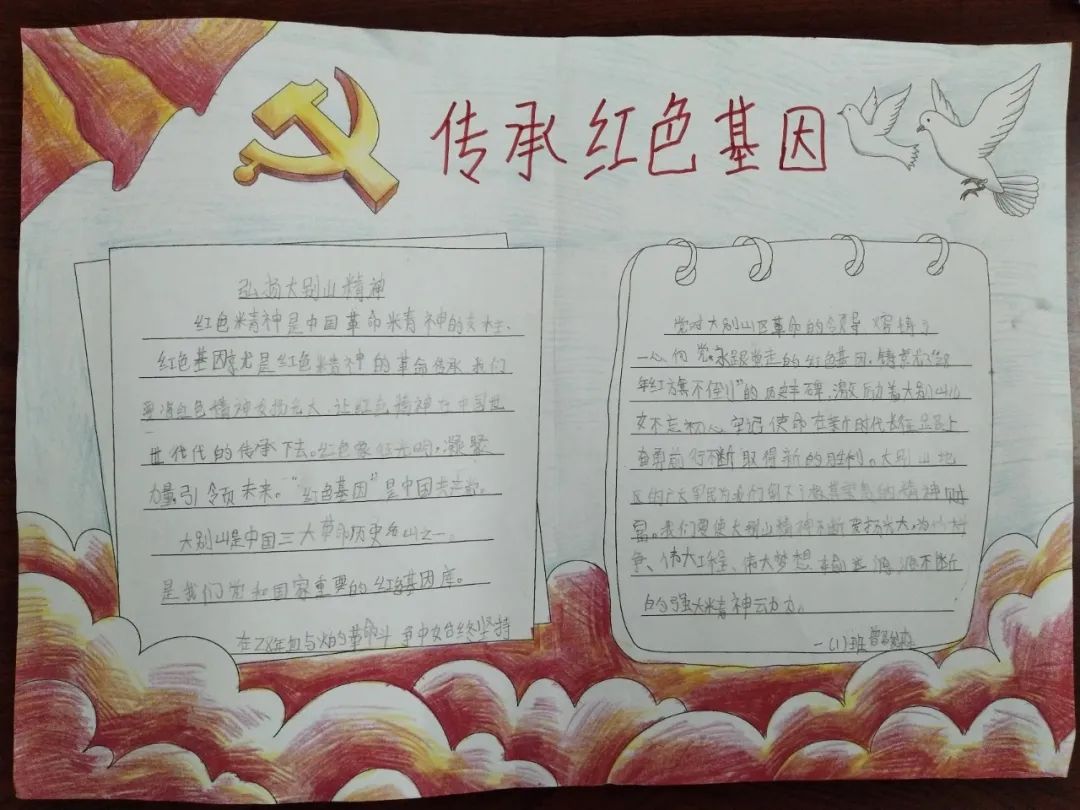 传承红色基因
弘扬大别山精神
红色精神是中国革命精神的
红色基因就是红色精神的革命传承 我们
要将红色精神发扬光大,让红色精神在中国世
世代代的传承下去。红色象征光明,凝聚
力量,引领未来。“红色基因”是中国共产党。
大别山是中国三大革命历史名山之一。
是我们党和国家重要的红色基因库。
在28年血与火的革命斗争中始终坚持
党对大别山区革命的领导 熔铸了
一心向党、永跟党走的红色基因,铸就了“28
年红旗不倒”的历史丰碑,激励着大别山儿
女不忘初心 牢记使命 在新时代长征路上
奋勇前行不断取得新的胜利。大别山地
区的广大军民为我们留下了极其宝贵的精神财
富。我们要使大别山精神不断发扬光大,为伟大斗
争、伟大工程、伟大梦想 输送 源源不断
的强大精神动力。
一(1)班